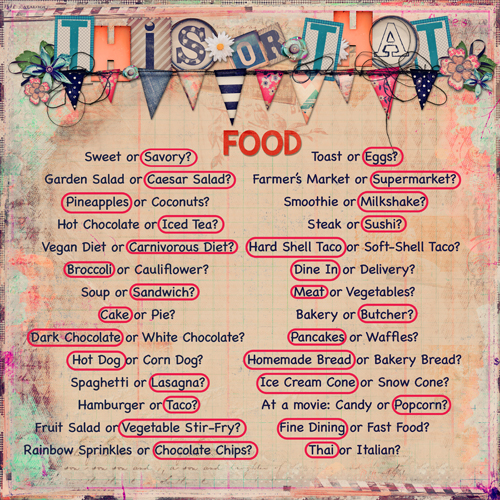 THIS OR THAT
FOOD
Sweet or Savory?
Garden Salad or Caesar Salad?
Pineapples or Coconuts?
Hot Chocolate or Iced Tea?
Vegan Diet or Carnivorous Diet?
Broccoli or Cauliflower?
Soup or Sandwich?
Cake or Pie?
Dark Chocolate or White Chocolate?
Hot Dog or Corn Dog?
Spaghetti or Lasagna?
Hamburger or Taco?
Fruit Salad or Vegetable Stir-Fry?
Rainbow Sprinkles or Chocolate Chips?
Toast or Eggs?
Farmer's Market or Supermarket?
Smoothie or Milkshake?
Steak or Sushi?
Hard Shell Taco or Soft-Shell Taco?
Dine In or Delivery?
Meat or Vegetables?
Bakery or Butcher?
Pancakes or Waffles?
Homemade Bread or Bakery Bread?
Ice Cream Cone or Snow Cone?
At a movie: Candy or Popcorn?
Fine Dining or Fast Food?
Thai or Italian?